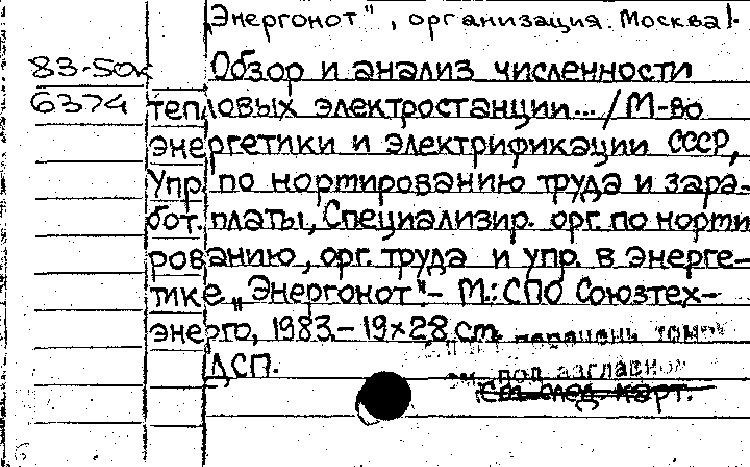 „Энергонот", организация. Москва.
83-50к Обзор и анализ численности
6374 тепловых электростанции.../М-во
энергетики и электрификации СССР,
Упр. по нормированию труда и зара-
бот. платы, Специализир. орг. по норми
рованию, орг. труда и упр. в энерге-
тике „Энергонот".- М.: СПО Союзтех-
энерго, 1983.- 19×28 см.
ДСП.
см. под заглавием
См. след. карт.